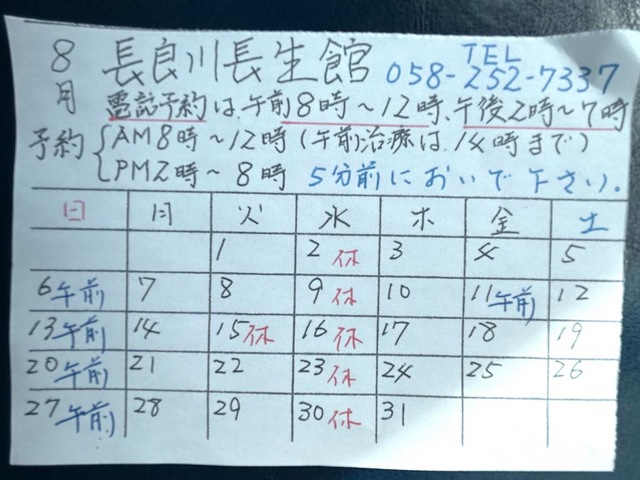 8月 長良川長生館 TEL 058-252-7337
電話予約は、午前8時～12時、午後2時～7時
予約 AM8時～12時(午前治療は、14時まで)
PM2時～8時 5分前においで下さい。
日 月 火 水 木 金 土
1 2休 3 4 5
6午前 7 8 9休 10 11午前 12
13午前 14 15休 16休 17 18 19
20午前 21 22 23休 24 25 26
27午前 28 29 30休 31